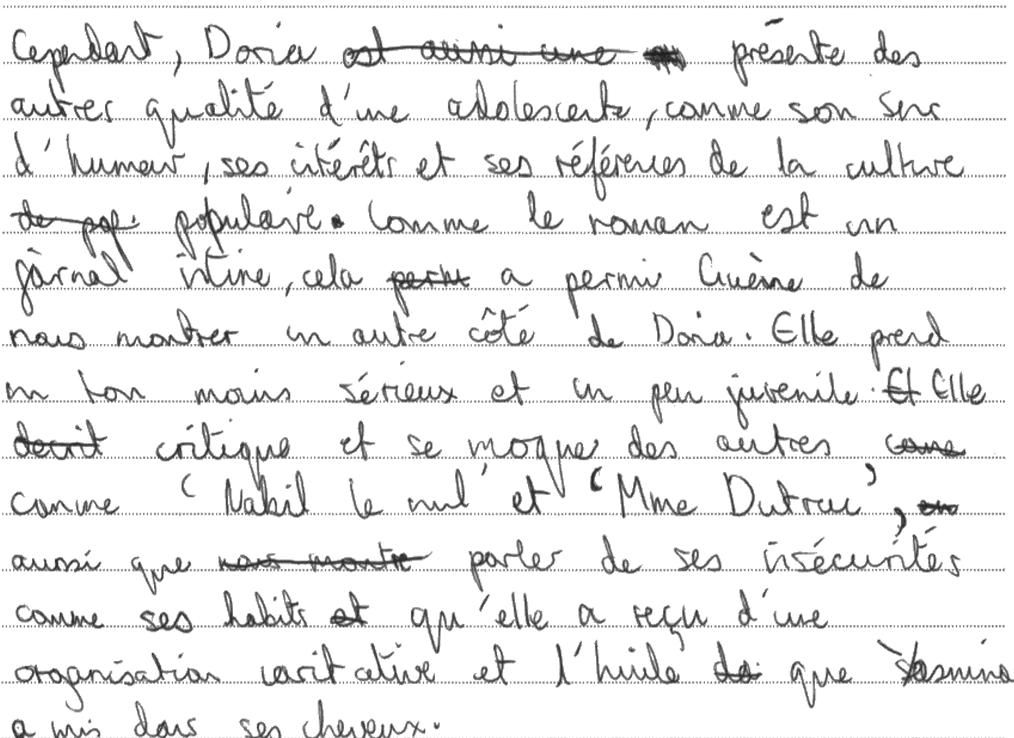 Cependant, Doria est aussi une présente des
autres qualité d'une adolescente, comme son sens
d'humour, ses intérêts et ses références de la culture
de pop. populaire. Comme le roman est un
journal intime, cela permt a permi Guène de
nous montrer un autre côté de Doria. Elle prend
un ton moins sérieux et un peu juvenile. Et Elle
decrit critique et se moque des autres come
comme 'Nabil le nul' et 'Mme Dutruc',
aussi que nous montre parler de ses insécurités
comme ses habits et qu'elle a reçu d'une
organisation caritative et l'huile de que Yasmina
a mis dans ses cheveux.